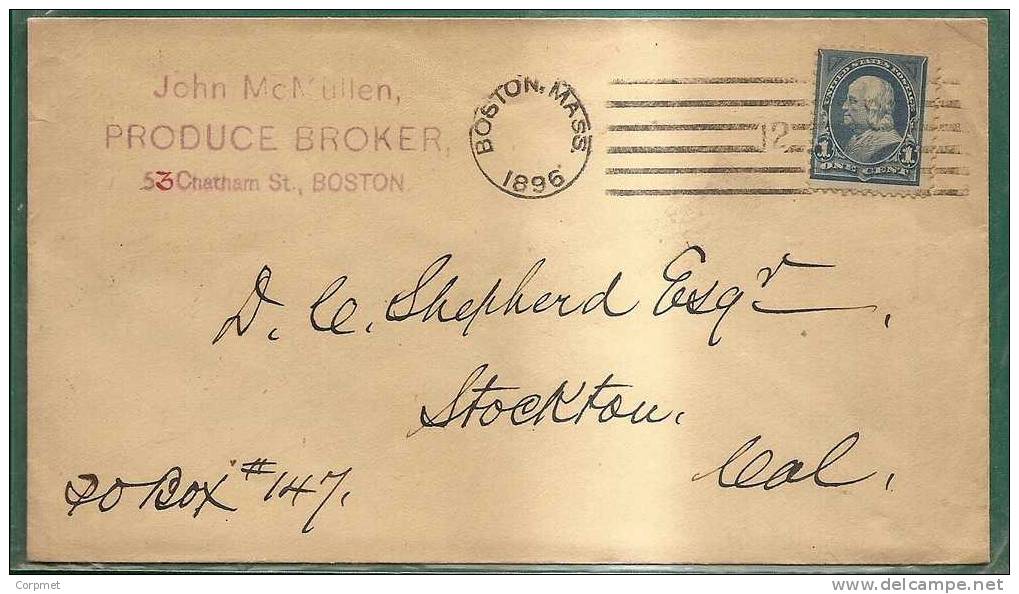 John McMullen,
PRODUCE BROKER,
53 Chatham St., BOSTON.
BOSTON, MASS
1896
12
UNITED STATES POSTAGE
1 ONE CENT 1
D. C. Shepherd Esqr.
Stockton.
Cal.
PO Box #147.
Corpmet
http://www.delcampe.net